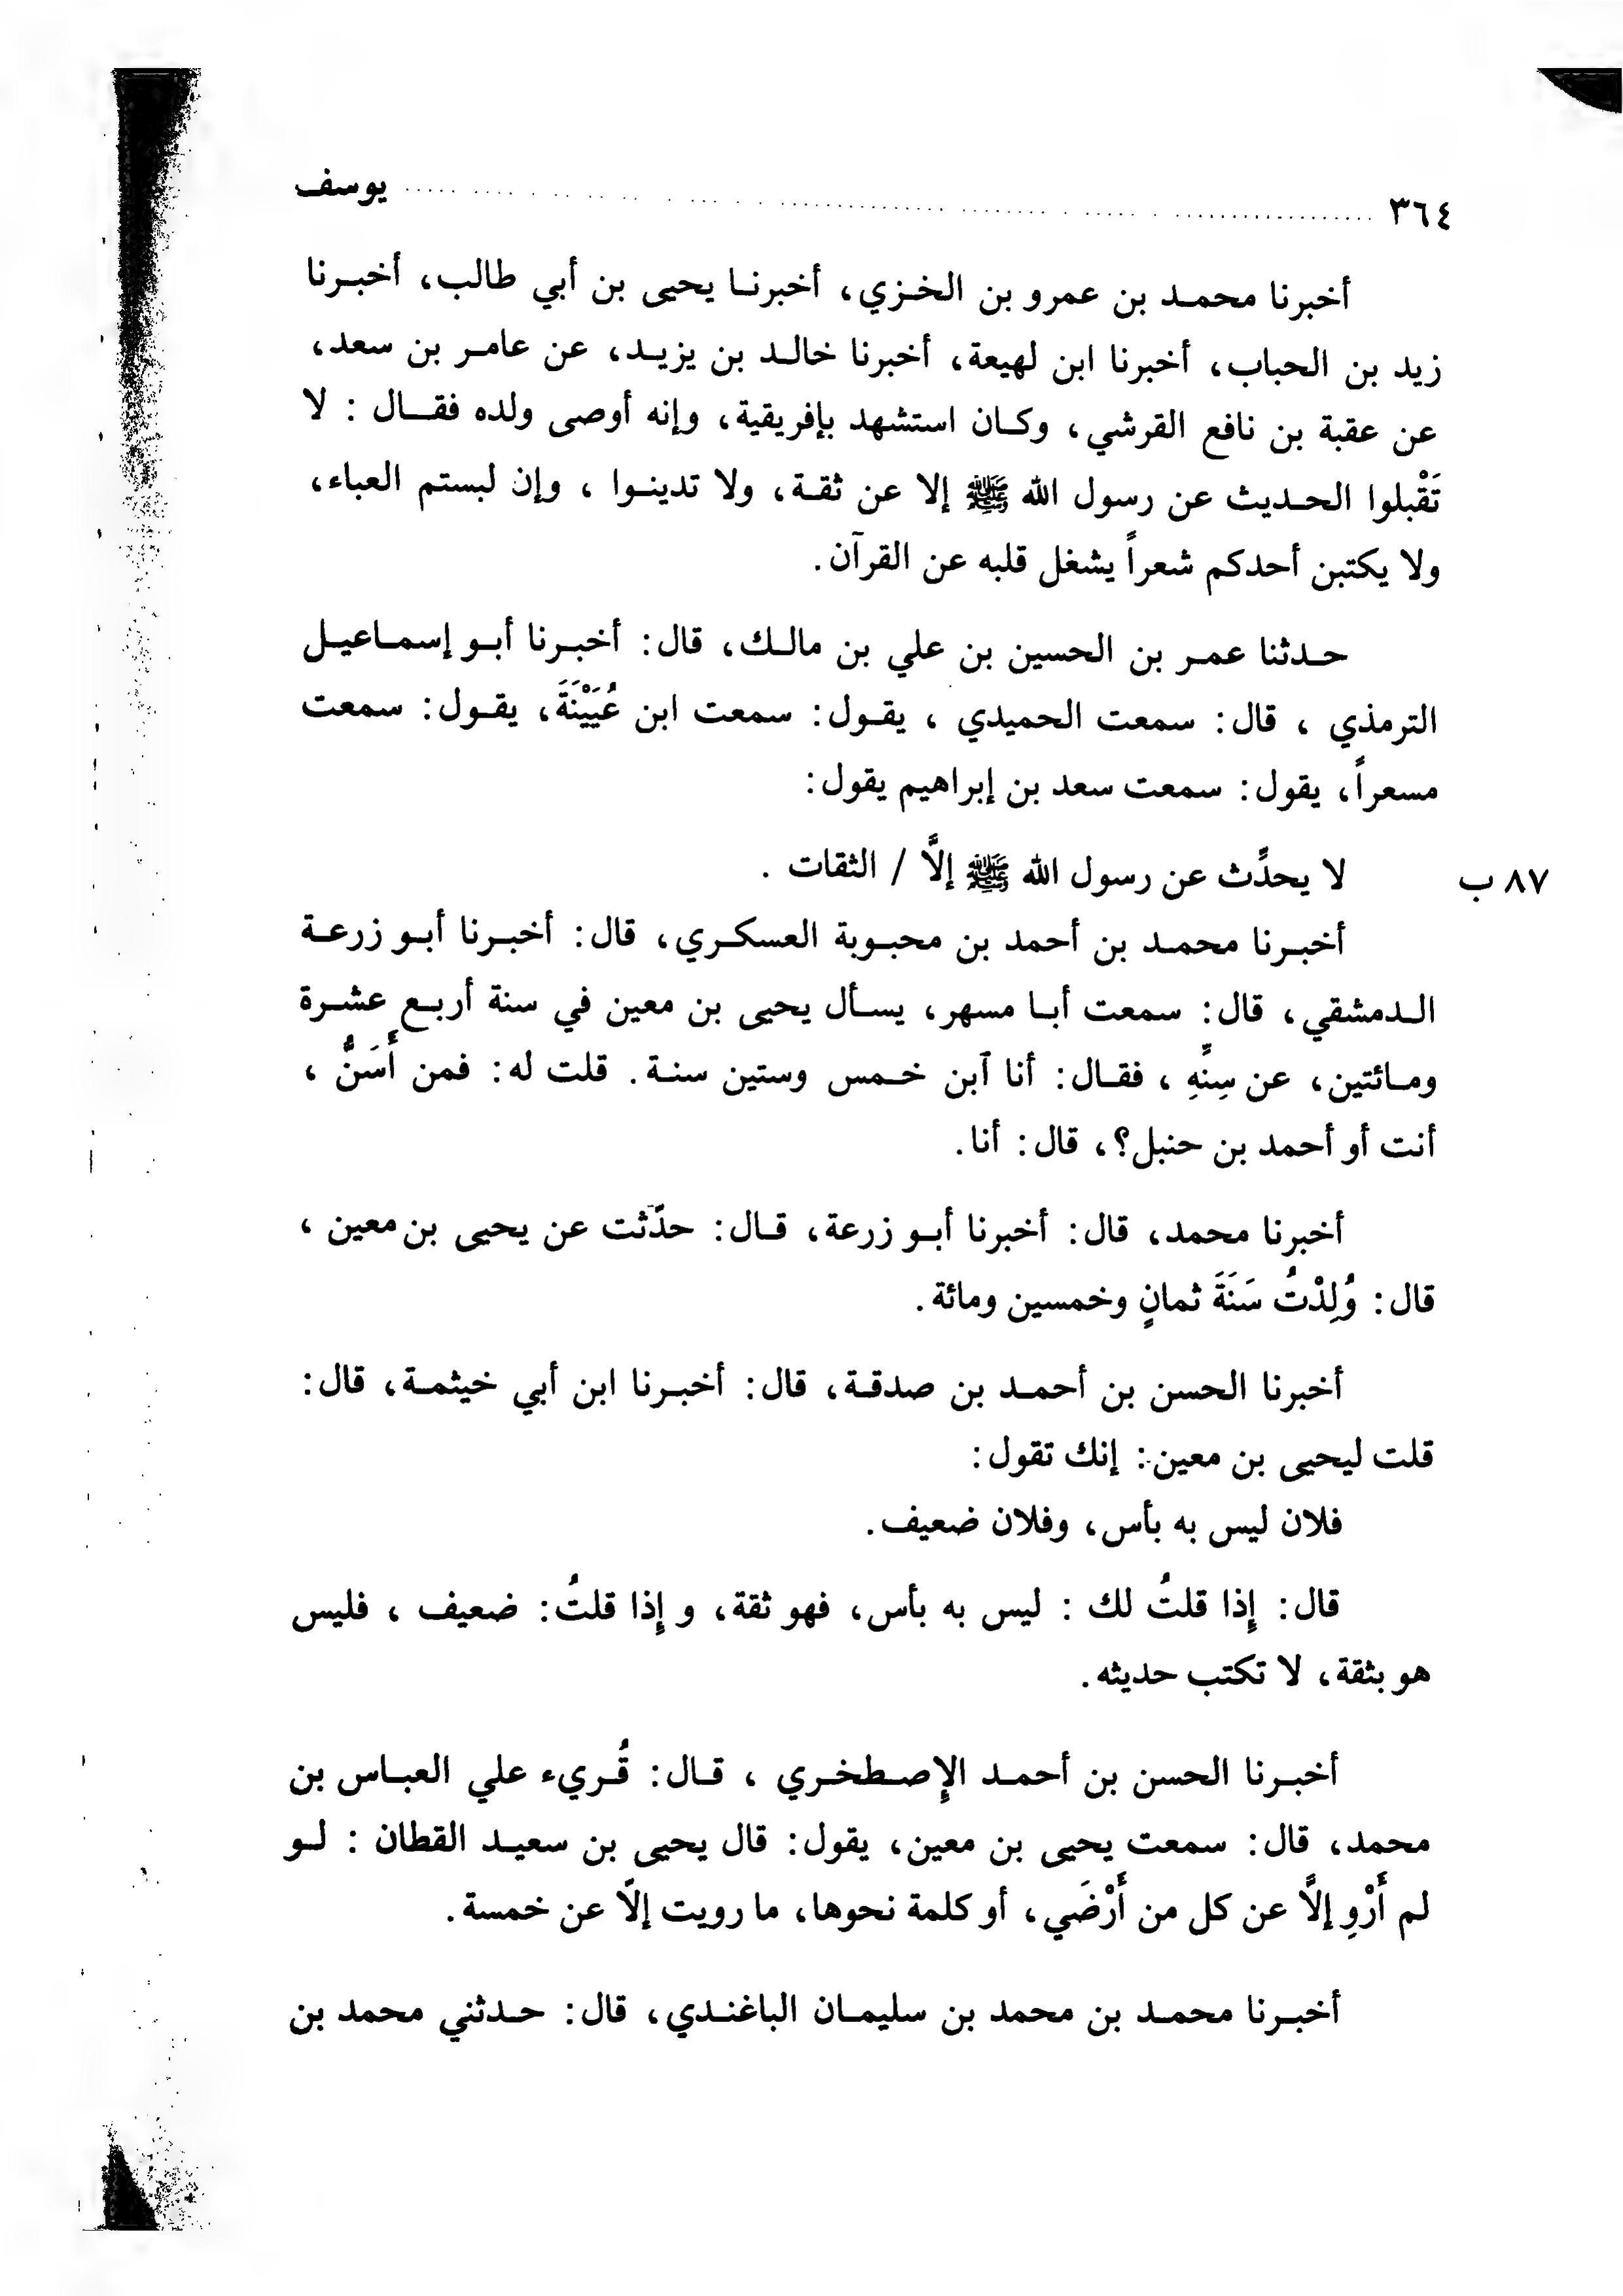 ٣٦٤ ........................................ يوسف
أخبرنا محمد بن عمرو بن الخزي، أخبرنا يحيى بن أبي طالب، أخبرنا
زيد بن الحباب، أخبرنا ابن لهيعة، أخبرنا خالد بن يزيد، عن عامر بن سعد،
عن عقبة بن نافع القرشي، وكان استشهد بإفريقية، وإنه أوصى ولده فقال : لا
تَقْبلوا الحديث عن رسول الله ﷺ إلا عن ثقة، ولا تدينوا ، وإن لبستم العباء،
ولا يكتبن أحدكم شعراً يشغل قلبه عن القرآن.
حدثنا عمر بن الحسين بن علي بن مالك، قال: أخبرنا أبو إسماعيل
الترمذي ، قال: سمعت الحميدي ، يقول: سمعت ابن عُيَيْنَةَ، يقول: سمعت
مسعراً، يقول: سمعت سعد بن إبراهيم يقول:
٨٧ ب لا يحدِّث عن رسول الله ﷺ إلَّا / الثقات .
أخبرنا محمد بن أحمد بن محبوبة العسكري، قال: أخبرنا أبو زرعة
الدمشقي، قال: سمعت أبا مسهر، يسأل يحيى بن معين في سنة أربع عشرة
ومائتين، عن سِنِّهِ ، فقال: أنا آبن خمس وستين سنة. قلت له: فمن أَسَنُّ ،
أنت أو أحمد بن حنبل؟، قال: أنا.
أخبرنا محمد، قال: أخبرنا أبو زرعة، قال: حدّثت عن يحيى بن معين ،
قال: وُلِدْتُ سَنَةَ ثمانٍ وخمسين ومائة.
أخبرنا الحسن بن أحمد بن صدقة، قال: أخبرنا ابن أبي خيثمة، قال:
قلت ليحيى بن معين: إنك تقول:
فلان ليس به بأس، وفلان ضعيف.
قال: إِذا قلتُ لك : ليس به بأس، فهو ثقة، و إِذا قلتُ: ضعيف ، فليس
هو بثقة، لا تكتب حديثه.
أخبرنا الحسن بن أحمد الإِصطخري ، قال: قُريء علي العباس بن
محمد، قال: سمعت يحيى بن معين، يقول: قال يحيى بن سعيد القطان : لو
لم أَرْوِ إلَّا عن كل من أَرْضَي، أو كلمة نحوها، ما رويت إلَّا عن خمسة.
أخبرنا محمد بن محمد بن سليمان الباغندي، قال: حدثني محمد بن